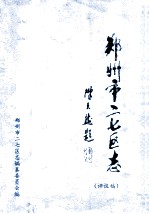 郑州市二七区志
(评议稿)
郑州市二七区志编纂委员会编